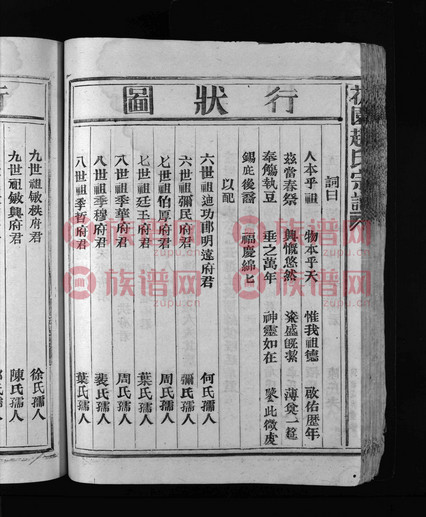 行狀圖
詞曰
人本乎祖 物本乎天 惟我祖德 啟佑歷年
茲當春祭 興慨悠然 粢盛既潔 薄奠一筵
奉觴執豆 垂之萬年 神靈如在 鑒此微虔
錫庇後裔 福慶綿匕
以配
六世祖迪功郎明達府君 何氏孺人
六世祖彌民府君 彌氏孺人
七世祖伯厚府君 周氏孺人
七世祖廷玉府君 葉氏孺人
八世祖季華府君 周氏孺人
八世祖季穆府君 裴氏孺人
八世祖季哲府君 葉氏孺人
九世祖敏秩府君 徐氏孺人
九世祖敏興府君 陳氏孺人
族谱网
zupu.cn